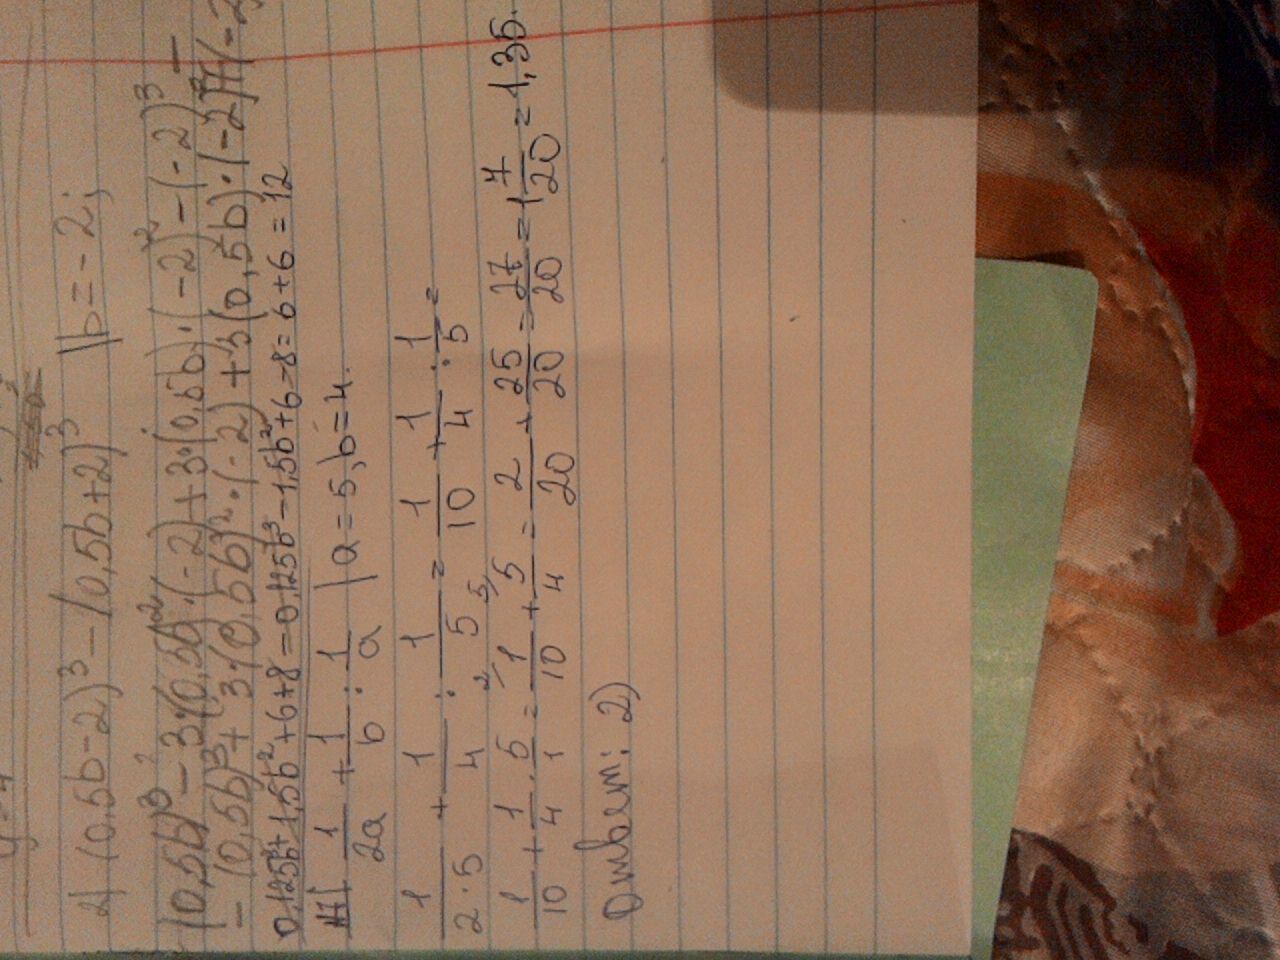 2) (0,5b-2)³-(0,5b+2)³ || b=-2;
(0,5b)³-3·(0,5b)²·(-2)+3·(0,5b)·(-2)²-(-2)³-
-(0,5b)³+3·(0,5b)²·(-2)+3(0,5b)·(-2)²+(-2)
0,125b³+1,5b²+6+8=0,125b³-1,5b²+6-8=6+6=12
1/2a + 1/b : 1/a | a=5, b=4.
1/2·5 + 1/4 : 1/5 = 1/10 + 1/4 : 1/5 =
1/10 + 1/4 · 5/1 = 1/10 + 5/4 = 2/20 + 25/20 = 27/20 = 1 7/20 = 1,35.
Ответ: 2)